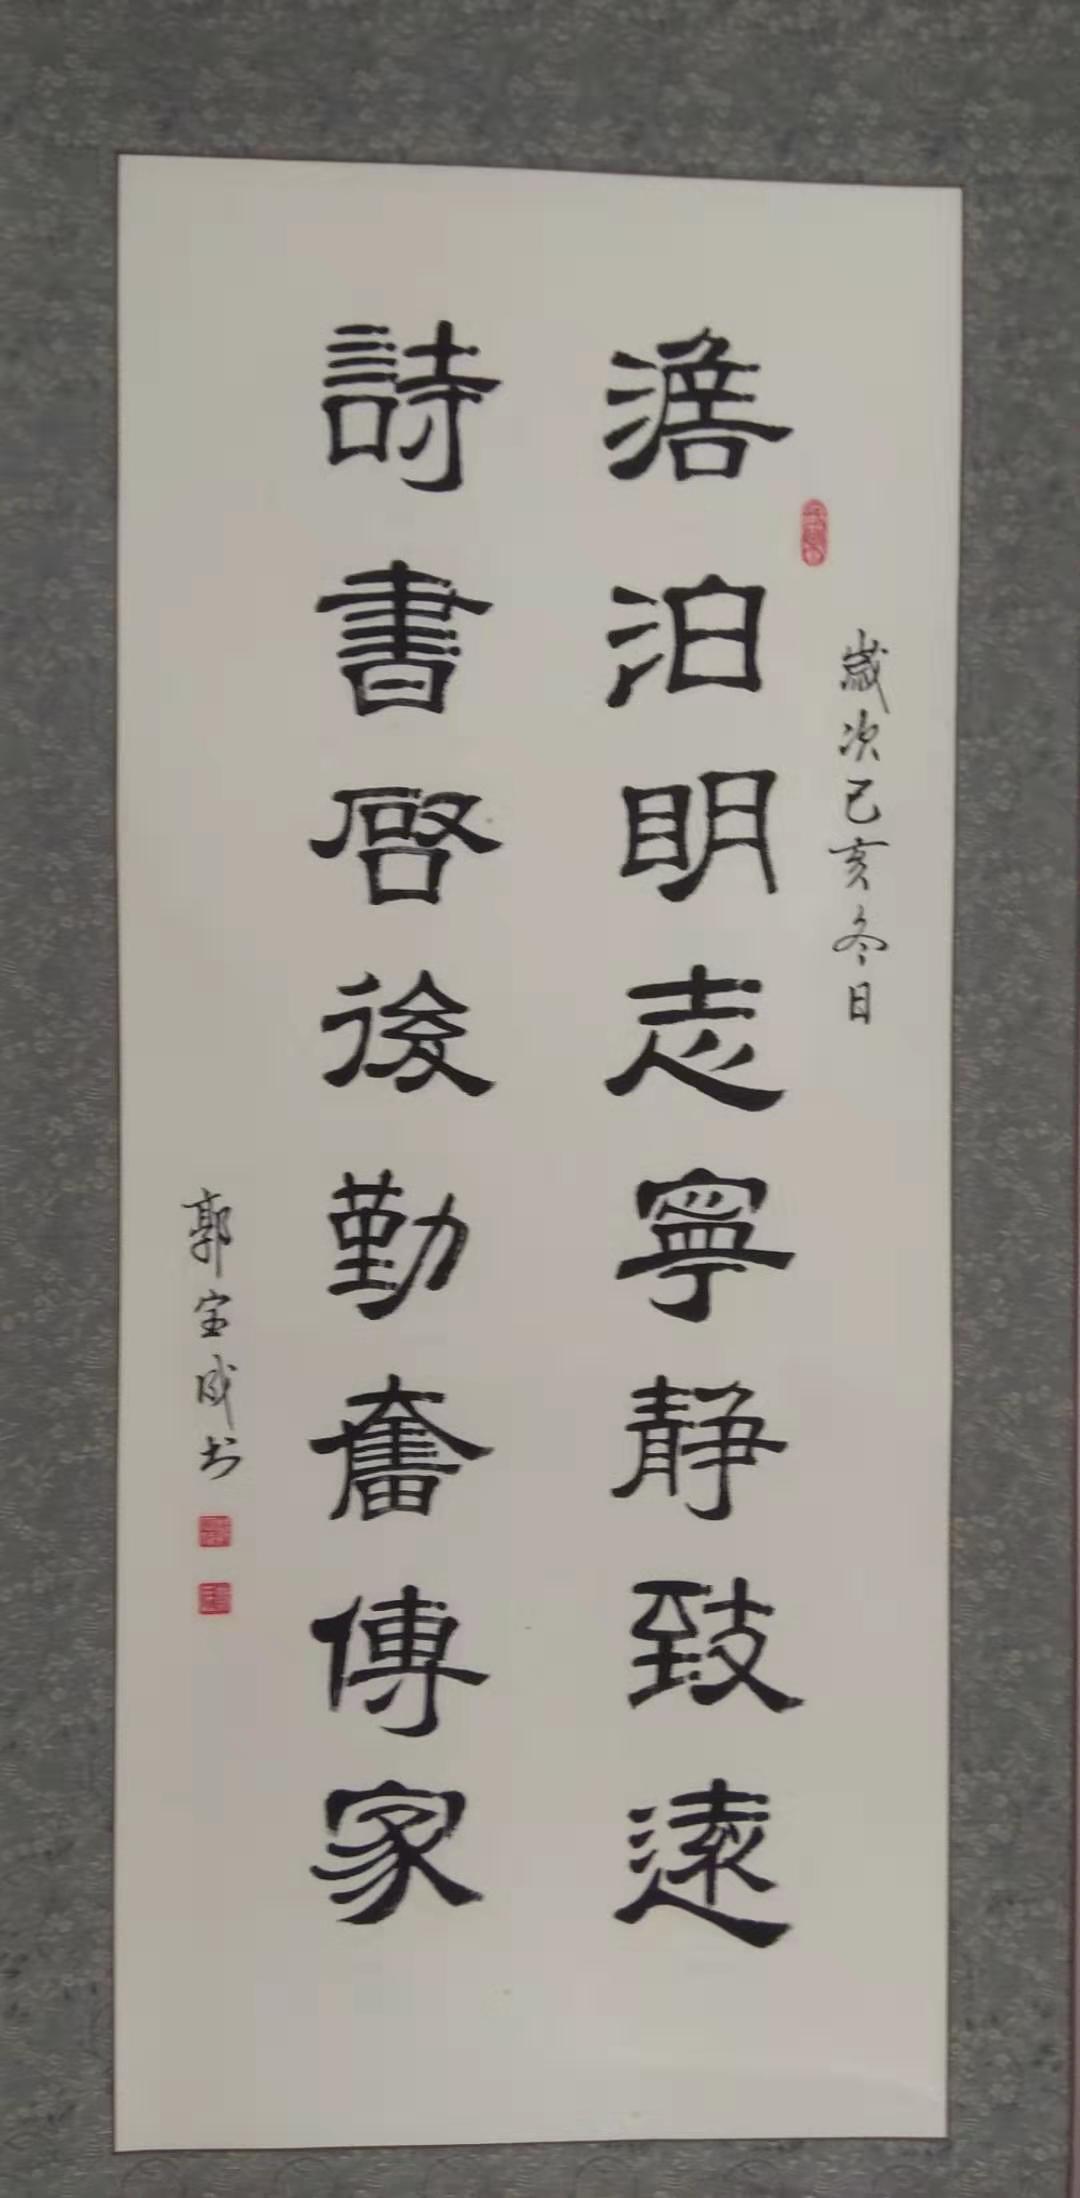 歲次己亥冬日
澹泊明志寧静致遠
詩書啓後勤奮傳家
郭宝成书